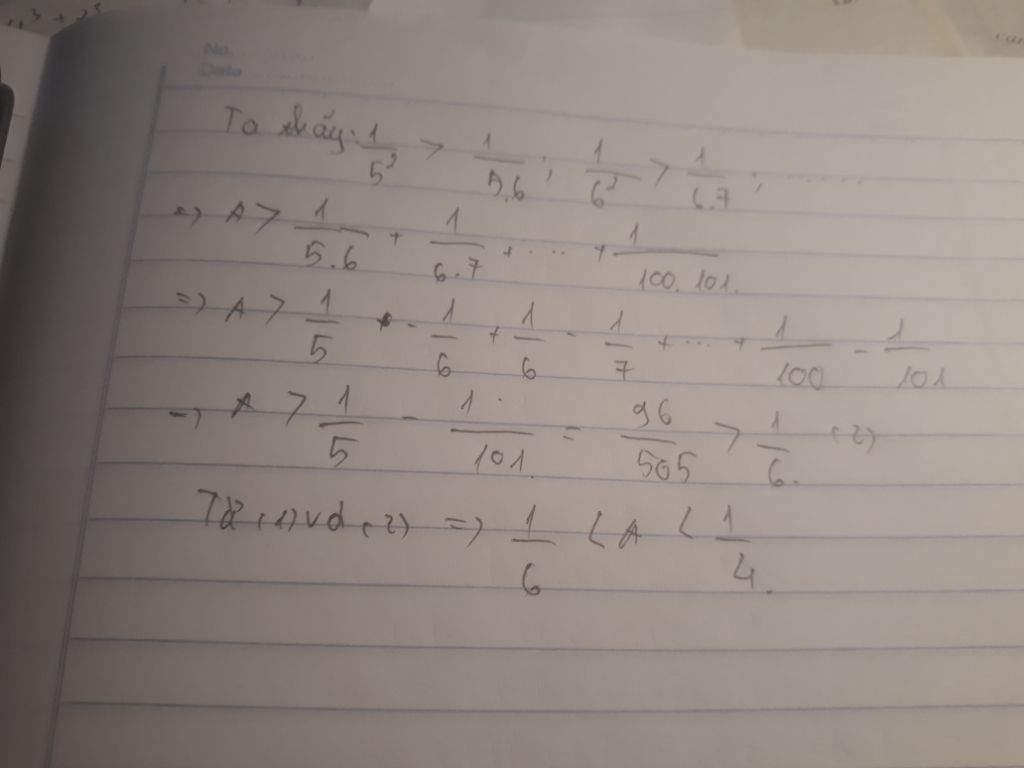 No.
Date
Ta thấy: 1/5² > 1/5.6 ; 1/6² > 1/6.7 ; ......
=> A > 1/5.6 + 1/6.7 + ... + 1/100.101.
=> A > 1/5 - 1/6 + 1/6 - 1/7 + ... + 1/100 - 1/101
=> A > 1/5 - 1/101. = 96/505 > 1/6. (2)
Từ (1) và (2) => 1/6 < A < 1/4.